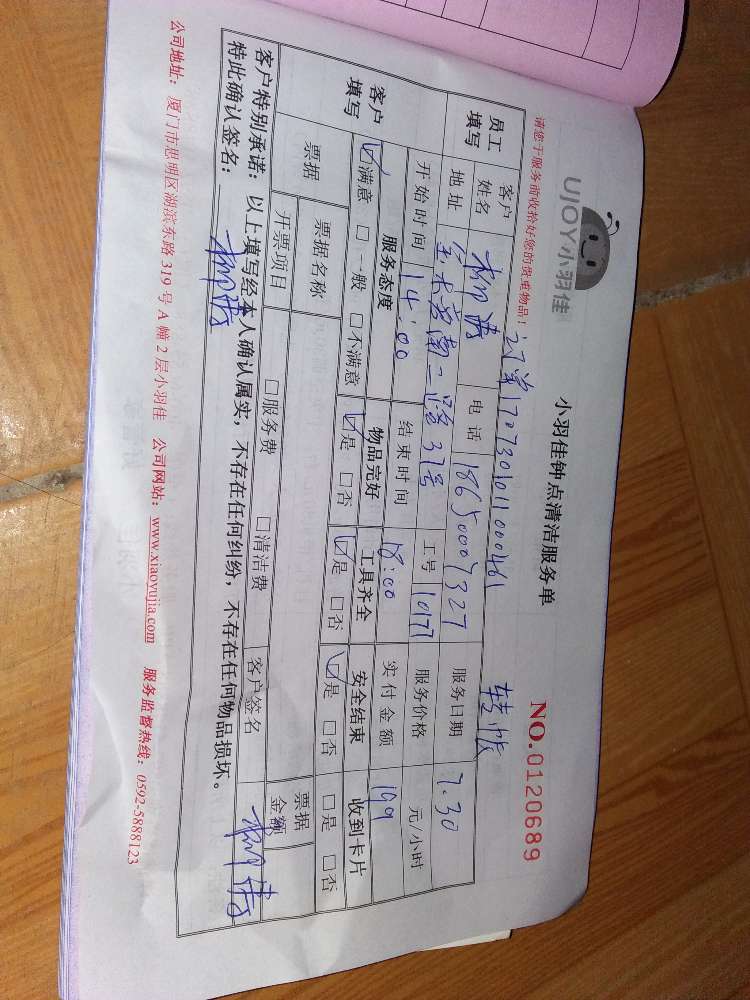 UJOY小羽佳
小羽佳钟点清洁服务单
NO.0120689
请您于服务前收拾好您的贵重物品!
订单170730101000461
转帐
员工填写
客户姓名
电话 18650007327
服务日期 7.30
地址
南二路37号
工号 10177
服务价格 元/小时
开始时间 14:00
结束时间 18:00
实付金额 199
客户填写
服务态度 物品完好 工具齐全 安全结束 收到卡片
☑满意 □一般 □不满意 ☑是 □否 ☑是 □否 ☑是 □否 □是 □否
票据
票据名称
票据金额
开票项目 □服务费 □清洁费 客户签名
客户特别承诺:以上填写经本人确认属实,不存在任何纠纷,不存在任何物品损坏。
特此确认签名:
公司地址:厦门市思明区湖滨东路319号A幢2层小羽佳 公司网站:www.xiaoyujia.com 服务监督热线:0592-5888123